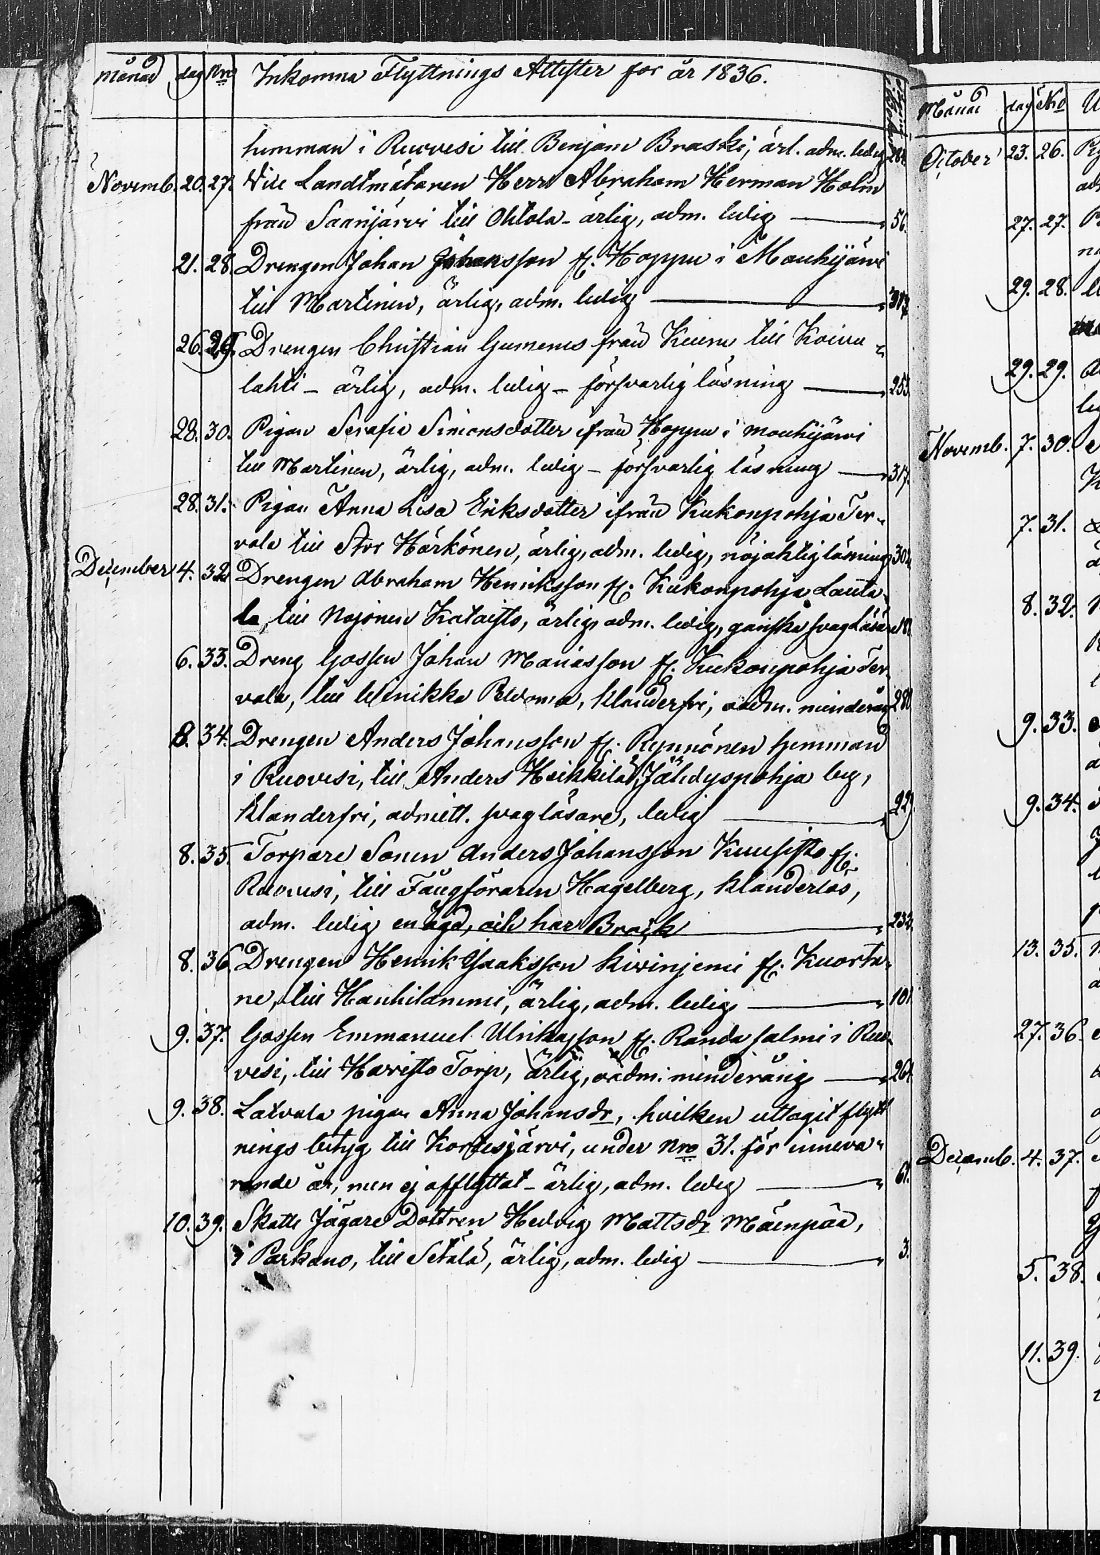 Månad dag Nro Inkomna Flyttnings Attester for år 1836.
hemman i Ruovesi till Benjam Braski, ärl. adm. ledig
Novemb. 20. 27. Vice Landtmätaren Herr Abraham Herman Holm
från Saanjärvi till Ohtola - ärlig, adm. ledig 56.
21. 28. Drengen Johan Johansson fr. Hoppu i Mouhijärvi
till Martinen, ärlig, adm. ledig 317.
26. 29. Drengen Christian Gumerus från Keuru till Koivu
lahti - ärlig, adm. ledig - försvarlig läsning 253.
28. 30. Pigan Serafia Simonsdotter ifrån Hoppu i Mouhijärvi
till Martinen, ärlig, adm. ledig - försvarlig läsning 317.
28. 31. Pigan Anna Lisa Eriksdotter ifrån Kukonpohja Ter-
vala till Stor Härkönen, ärlig, adm. ledig, nöjaktig läsning 302.
December 4. 32. Drengen Abraham Henriksson fr. Kukonpohja Lauta
la, till Nojonen Kataisto, ärlig, adm. ledig, ganska svag Läsare
6. 33. Dreng Gossen Johan Mariasson fr. Kukonpohja Ter
vala, till Wenikka, klanderfri, oadm. minderårig 280.
8. 34. Drengen Anders Johansson fr. Rynnönen hemman
i Ruovesi, till Anders Heikkilä, Jähdyspohja by,
klanderfri, admitt. svag läsare, ledig 221
8. 35. Torpare Sonen Anders Johansson Kuusisto fr.
Ruovesi, till Faugföraren Hagelberg, klanderlös,
adm. ledig enögd, och har Bråck 232.
8. 36. Drengen Henrik Isaaksson Kivinjemi fr. Kuorta-
ne, till Hauhilammi, ärlig, adm. ledig 101.
9. 37. Gossen Emmanuel Ulrikasson fr. Randasalmi i Ruo-
vesi, till Haristo Torp, ärlig, oadm. minderårig 264.
9. 38. Latvala pigan Anna Johansdr, hvilken uttagit flytt
nings betyg till Kortesjärvi, under Nro 31. för inneva-
rande år, men ej afflyttat - ärlig, adm. ledig 61.
10. 39. Skatte Jägare Dottren Hedvig Mattsdr Mäenpää,
i Parkano, till Setälä, ärlig, adm. ledig 3.
Månad dag No
October 23. 26.
27. 27.
29. 28.
29. 29.
Novemb. 7. 30.
7. 31.
8. 32.
9. 33.
9. 34.
13. 35.
27. 36.
Decemb. 4. 37.
5. 38.
11. 39.